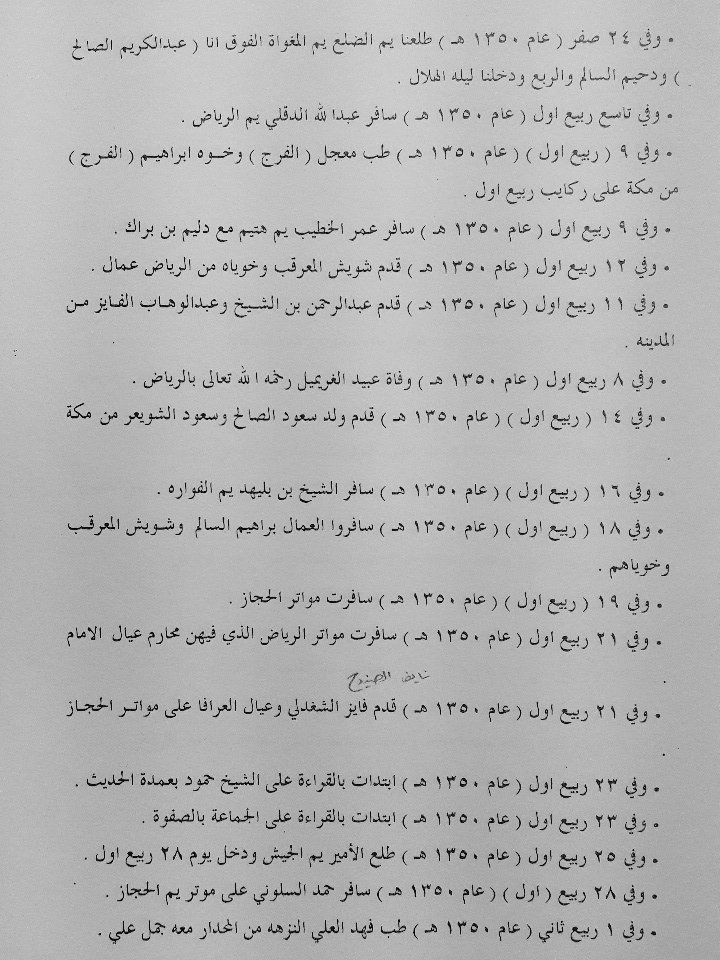 • وفي ٢٤ صفر ( عام ١٣٥٠ هـ ) طلعنا يم الضلع يم المغواة الفوق انا ( عبدالكريم الصالح
) ودحيم السالم والربع ودخلنا ليله الهلال .
• وفي تاسع ربيع اول ( عام ١٣٥٠ هـ ) سافر عبدا لله الدقلي يم الرياض .
• وفي ٩ ( ربيع اول ) ( عام ١٣٥٠ هـ ) طب معجل ( الفرج ) وخوه ابراهيم ( الفرج )
من مكة على ركايب ربيع اول .
• وفي ٩ ربيع اول ( عام ١٣٥٠ هـ ) سافر عمر الخطيب يم هتيم مع دليم بن براك .
• وفي ١٢ ربيع اول ( عام ١٣٥٠ هـ ) قدم شويش المعرقب وخوياه من الرياض عمال .
• وفي ١١ ربيع اول ( عام ١٣٥٠ هـ ) قدم عبدالرحمن بن الشيخ وعبدالوهاب الفايز من
المدينه .
• وفي ٨ ربيع اول ( عام ١٣٥٠ هـ ) وفاة عبيد الغريميل رحمه ا لله تعالى بالرياض .
• وفي ١٤ ( ربيع اول ) ( عام ١٣٥٠ هـ ) قدم ولد سعود الصالح وسعود الشويعر من مكة
.
• وفي ١٦ ( ربيع اول ) ( عام ١٣٥٠ هـ ) سافر الشيخ بن بليهد يم الفواره .
• وفي ١٨ ( ربيع اول ) ( عام ١٣٥٠ هـ ) سافروا العمال براهيم السالم وشويش المعرقب
وخوياهم .
• وفي ١٩ ( ربيع اول ) ( عام ١٣٥٠ هـ ) سافرت مواتر الحجاز .
• وفي ٢١ ربيع اول ( عام ١٣٥٠ هـ ) سافرت مواتر الرياض الذي فيهن محارم عيال الامام
.
نايف
• وفي ٢١ ربيع اول ( عام ١٣٥٠ هـ ) قدم فايز الشغدلي وعيال العرافا على مواتر الحجاز
.
• وفي ٢٣ ربيع اول ( عام ١٣٥٠ هـ ) ابتدات بالقراءة على الشيخ حمود بعمدة الحديث .
• وفي ٢٣ ربيع اول ( عام ١٣٥٠ هـ ) ابتدات بالقراءة على الجماعة بالصفوة .
• وفي ٢٥ ربيع اول ( عام ١٣٥٠ هـ ) طلع الأمير يم الجيش ودخل يوم ٢٨ ربيع اول .
• وفي ٢٨ ربيع ( اول ) ( عام ١٣٥٠ هـ ) سافر حمد السلوني على موتر يم الحجاز .
• وفي ١ ربيع ثاني ( عام ١٣٥٠ هـ ) طب فهد العلي النزهه من المحدار معه جمل علي .